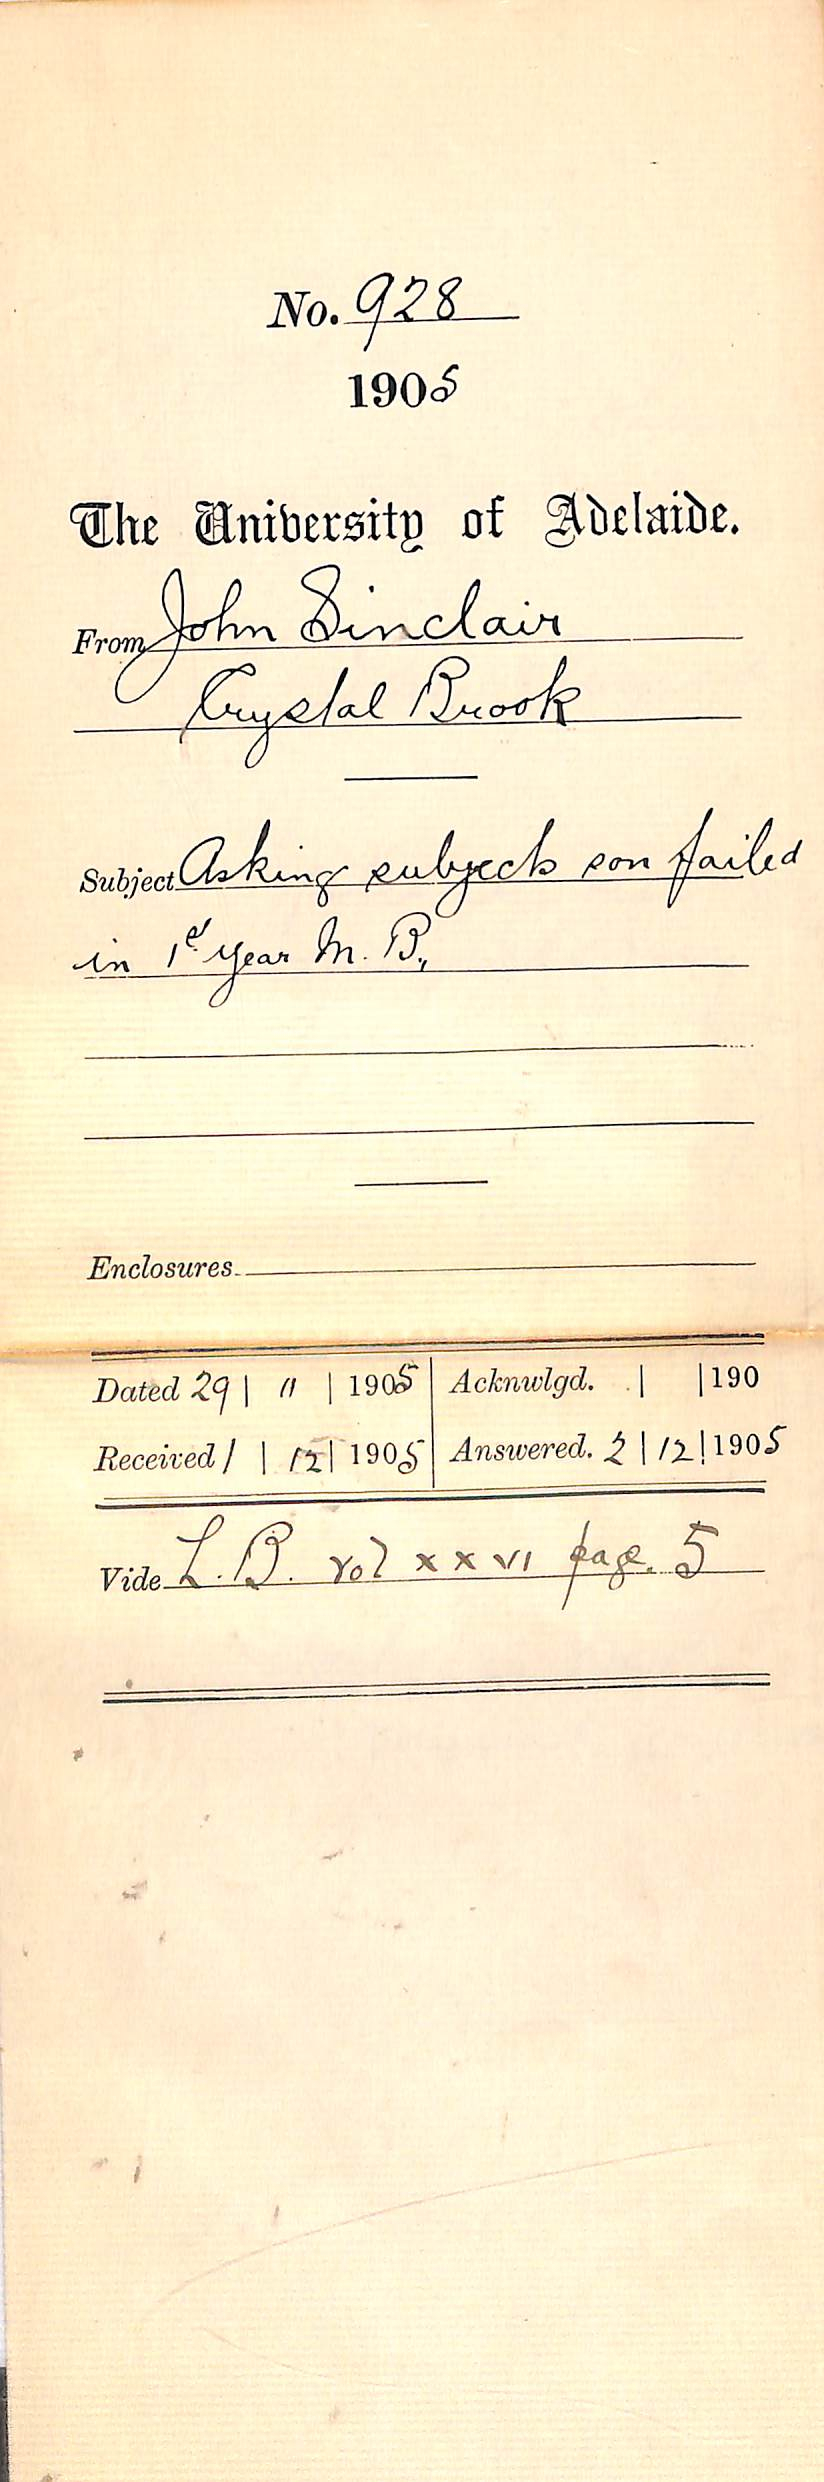 No. 928
1905
The University of Adelaide.
From John Sinclair
Crystal Brook
Subject Asking subjects son failed
in 1st year M. B.,
Enclosures
Dated 29 | 11 | 1905 | Acknwlgd. | |190
Received 1 | 12 | 1905 | Answered. 2 | 12 | 1905
Vide L. B. vol xxvi page. 5